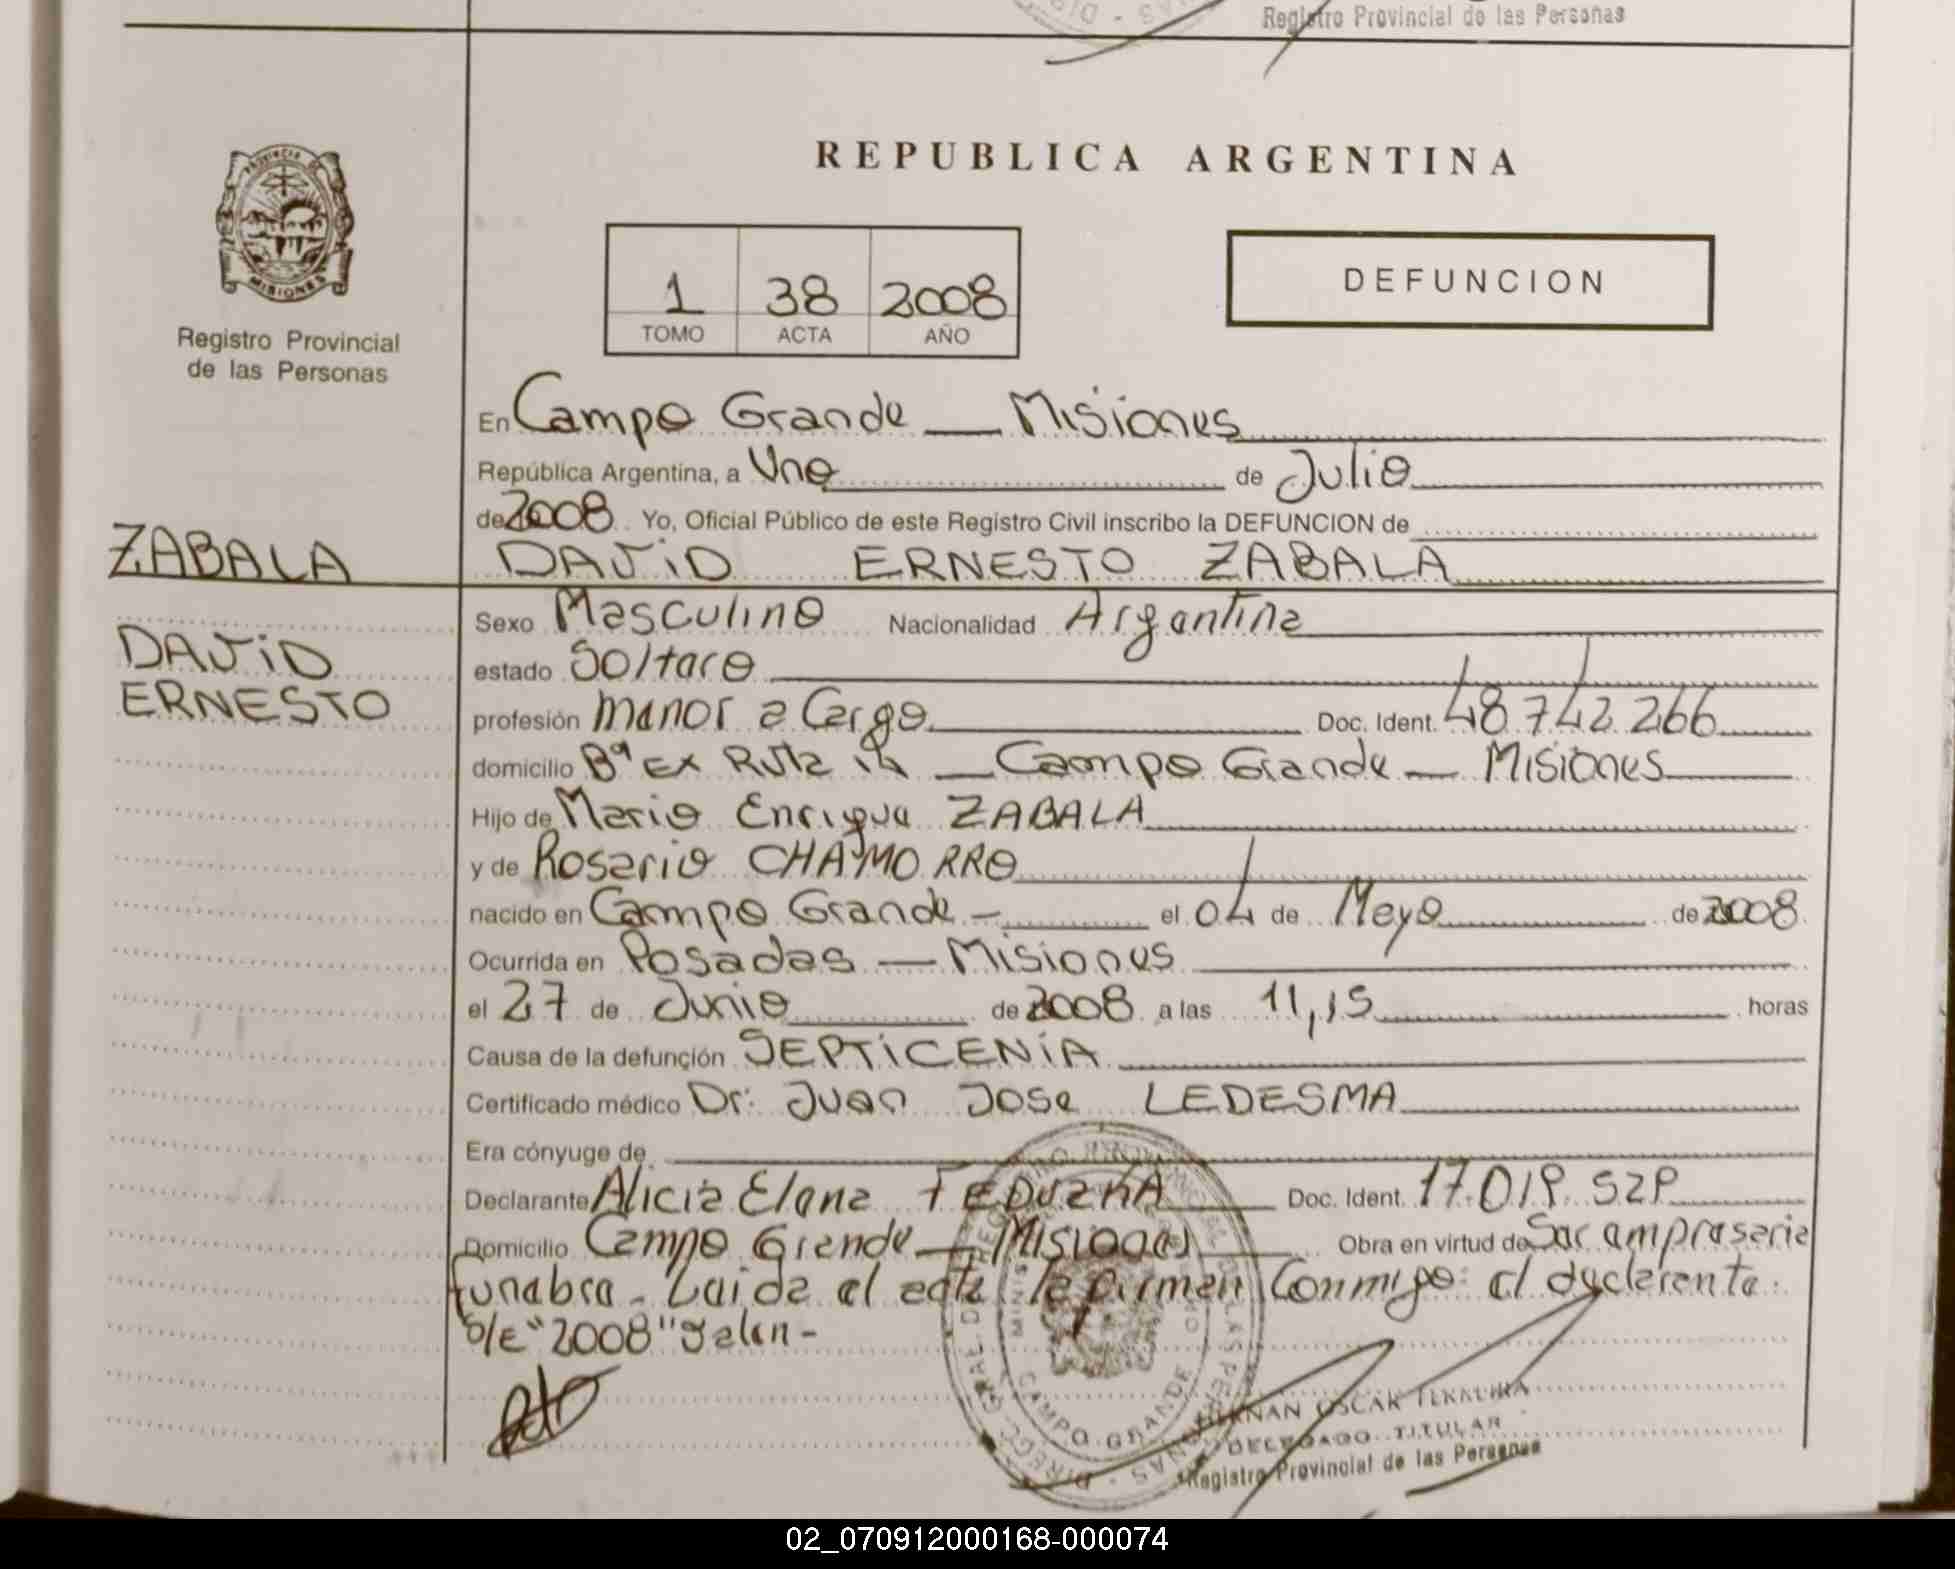 Registro Provincial de las Personas
PROVINCIA DE
MISIONES
Registro Provincial
de las Personas
REPUBLICA ARGENTINA
1 38 2008
TOMO ACTA AÑO
DEFUNCION
En Campo Grande — Misiones
República Argentina, a Uno de Julio
de 2008 Yo, Oficial Público de este Registro Civil inscribo la DEFUNCION de
ZABALA
DAVID ERNESTO ZABALA
DAVID
ERNESTO
Sexo Masculino Nacionalidad Argentina
estado Soltero
profesión menor a Cargo Doc. Ident. 48.742.266
domicilio Bº Ex Ruta 14 — Campo Grande — Misiones
Hijo de Mario Enrique ZABALA
y de Rosario CHAMORRO
nacido en Campo Grande - el 04 de Mayo de 2008
Ocurrida en Posadas — Misiones
el 27 de Junio de 2008 a las 11,15 horas
Causa de la defunción SEPTICENIA
Certificado médico Dr: Juan Jose LEDESMA
Era cónyuge de
Declarante Alicia Elena Doc. Ident.
Domicilio Campo Grande — Misiones Obra en virtud de Ser empresaria
funebre - Leida el acta la firman Conmigo el declarante.
S/E "2008" Valen -
CAMPO GRANDE
OSCAR
DELEGADO TITULAR
Registro Provincial de las Personas
02_070912000168-000074